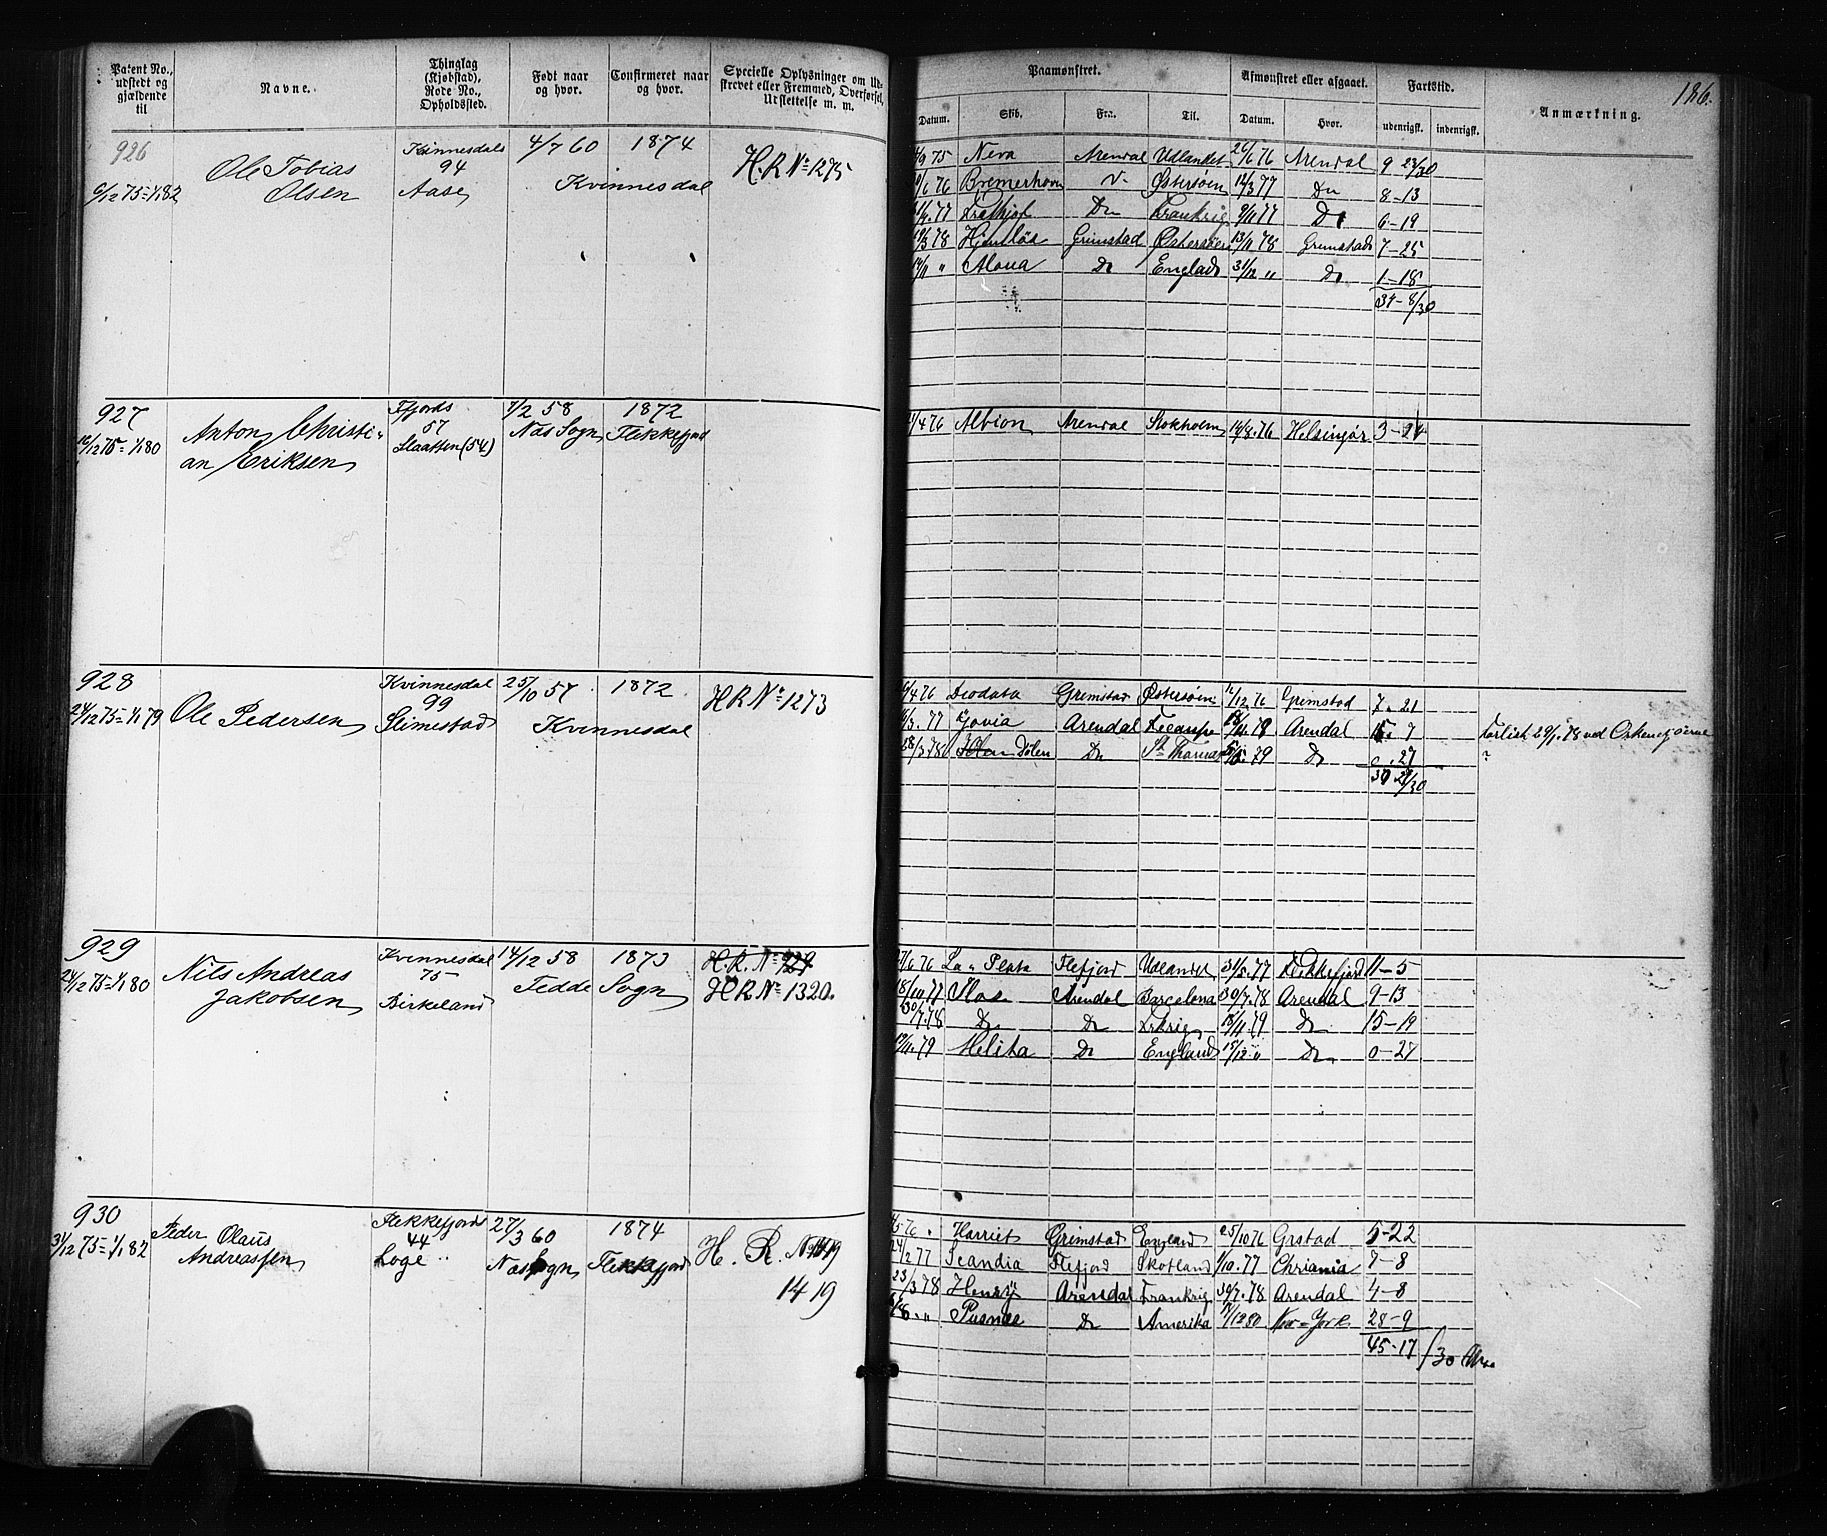 Patent No., udstedt og gjældende til
Navne.
Thinglag (Kjøbstad), Rode No., Opholdssted.
Født naar og hvor.
Confirmeret naar og hvor.
Specielle Oplysninger om Udskrevet eller Fremmed, Overførsel, Udslettelse m. m.
Paamønstret.
Datum.
Skib.
Fra.
Til.
Afmønstret eller afgaaet.
Datum.
Hvor.
Fartstid.
udenrigsk.
indenrigsk.
Anmærkning.
186.
926
6/12 75 = 1/1 82
Ole Tobias
Olsen
Kvinnesdal
94
Aase
4/7 60 1874
Kvinnesdal
H.R. No 1275
9 75 Neva Arendal Udlandet 26/6 76 Arendal 9 - 23/30
6 76 Bremerhavn Østersøen 12/3 77 Do 8-13
77 Do Frankrig 9/11 77 Do 6-19
3 78 Grimstad Østersøen 13/11 78 Grimstad 7-25
14/11 " Alona Do England 31/12 " Do 1-18
34-8/30
927
16/12 75 = 1/1 80
Anton Christi-
an Eriksen
Ffjords
57
Slaatten (54)
7/2 58 1872
Næs Sogn Flekkefjord
/4 76 Albion Arendal Stokholm 14/8. 76 Helsingør 3-24
928
24/12 75 = 1/1 79
Ole Pedersen
Kvinnesdal
99
Slimestad
25/10 57 1872
Kvinnesdal
H R No 1273
/4 76 Deodata Grimstad Østersøen 16/12. 76 Grimstad 7. 21
77 Jovia Arendal Fecampe 78 Arendal 7
Forlist 29/1. 78 ved Orkenøjerne
28/3 78 Dølen Do St Thomas 79 Do . 27
?
30 2/30
929
24/12 75 = 1/1 80
Nils Andreas
Jakobsen
Kvinnesdal
75
Birkeland
14/12 58 1873
Fedde Sogn
H. R. No 929
H R No 1320.
/6 76 La Plata Flefjord Udlandet 31/5. 77 Flekkefjord 11-5
18/10 77 Arendal Barcelona 30/7. 78 Arendal 9-13
30/7. 78 Do Do Frkrig 18/11. 79 Do 15-19
19/11. 79 Melita Do England 15/12. " Do 0-27
930
31/12 75 = 1/1 82
Peder Olaus
Andreassen
Flekkefjord
44
Loge
27/3 60 1874
Næs Sogn Flekkefjord
H. R. No 1419
1419
/5 76 Harriet Grimstad England 25/10 76 Grstad 5-22
24/2 77 Scandia Flefjord Skotland 1/10. 77 Chriania 7-8
23/3 78 Henry Arendal Frankrig 30/7. 78 Arendal 4-8
/8 " Pusnæs Do Amerika 17/12 80 New-York 28-9
45-17/30